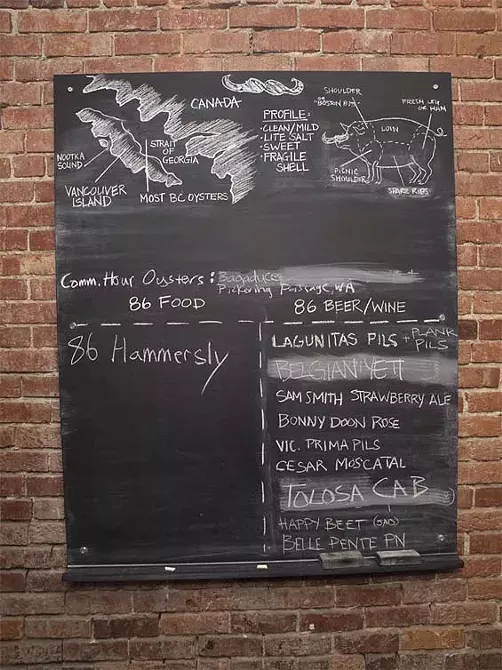 CANADA
NOOTKA SOUND
STRAIT OF GEORGIA
VANCOUVER ISLAND
MOST BC OYSTERS
PROFILE:
· CLEAN/MILD
· LITE SALT
· SWEET
· FRAGILE SHELL
SHOULDER
OR "BOSTON BUTT"
FRESH LEG OR HAM
LOIN
PICNIC SHOULDER
SPARE RIBS
Comm. Hour Oysters: Bagaduce
Pickering Passage, WA
86 FOOD
86 BEER/WINE
86 Hammersly
LAGUNITAS PILS + PLANK PILS
BELGIAN YETI
SAM SMITH STRAWBERRY ALE
BONNY DOON ROSE
VIC. PRIMA PILS
CESAR MOSCATAL
TOLOSA CAB
HAPPY BEET
BELLE PENTE PN